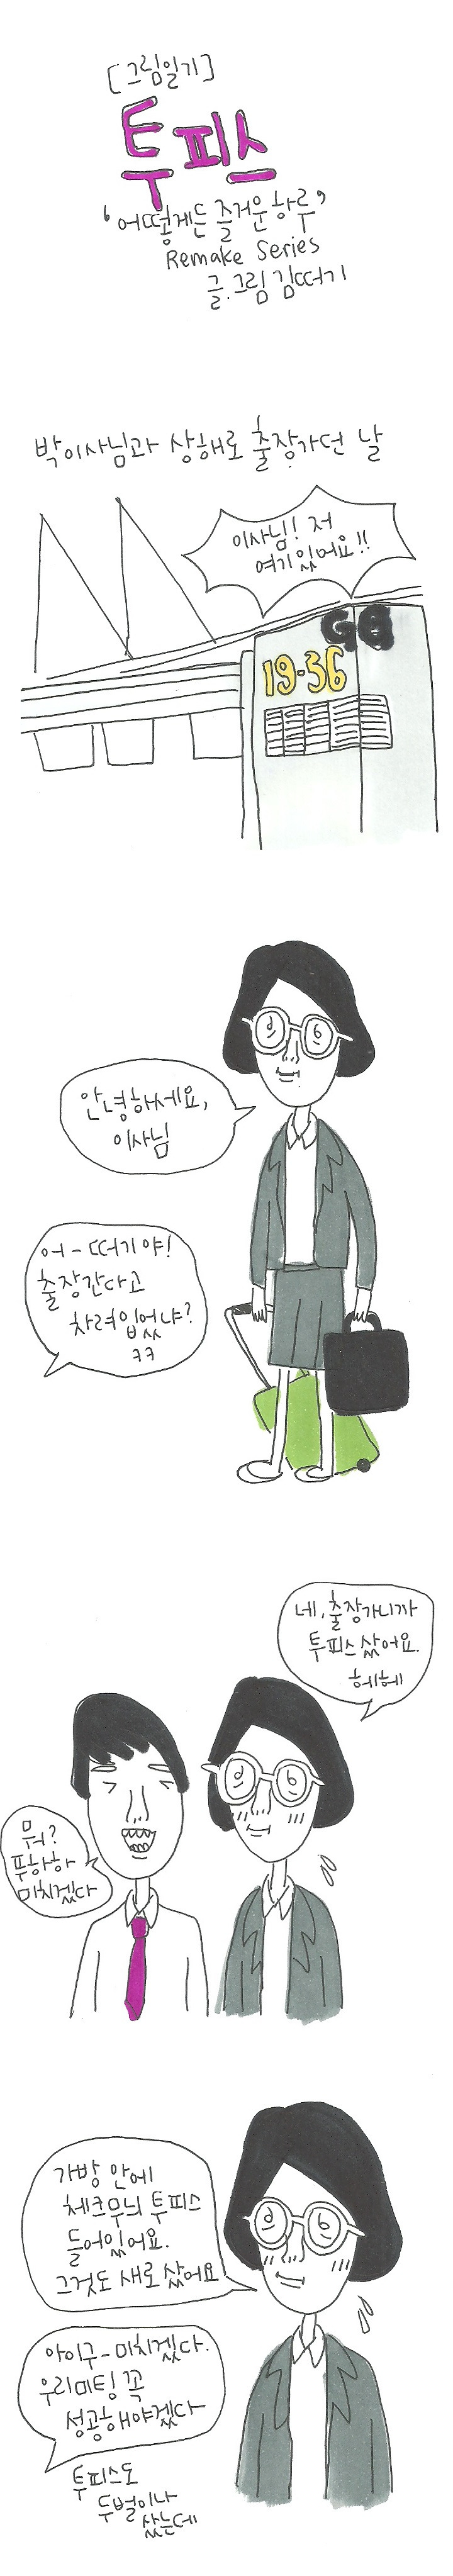 [그림일기]
투피스
'어떻게든 즐거운 하루'
Remake Series
글.그림 김떠기
박이사님과 상해로 출장가던 날
이사님! 저
여기있어요!!
G8
19-36
안녕하세요,
이사님
어-떠기야!
출장간다고
차려입었냐?
ㅋㅋ
네, 출장가니까
투피스 샀어요.
헤헤
뭐?
푸하하
미치겠다
가방 안에
체크무늬 투피스
들어있어요.
그것도 새로 샀어요
아이구-미치겠다.
우리미팅 꼭
성공해야겠다
투피스도
두벌이나
샀는데